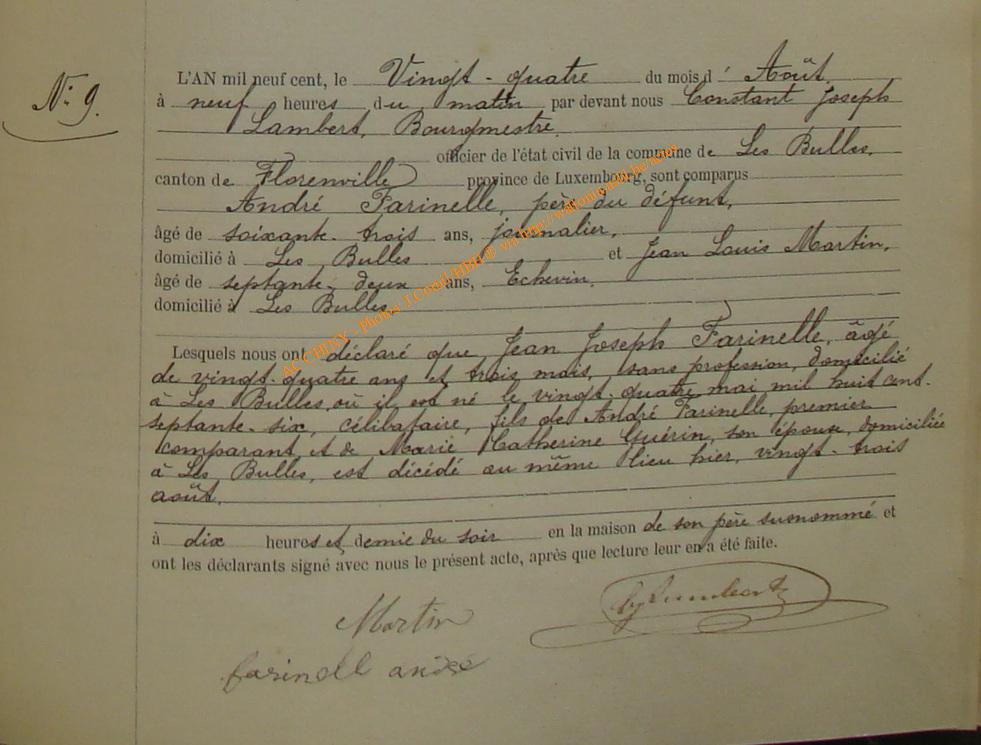 N° 9.
L'AN mil neuf cent, le Vingt-quatre du mois d' Août
à neuf heures du matin par devant nous Constant Joseph
Lambert, Bourgmestre
officier de l'état civil de la commune de Les Bulles,
canton de Florenville province de Luxembourg, sont comparus
André Farinelle, père du défunt,
âgé de soixante-trois ans, journalier,
domicilié à Les Bulles et Jean Louis Martin,
âgé de septante-deux ans, Echevin,
domicilié à Les Bulles
Lesquels nous ont déclaré que Jean Joseph Farinelle, âgé
de vingt-quatre ans et trois mois, sans profession, domicilié
à Les Bulles, où il est né le vingt-quatre mai mil huit cent-
septante-six, célibataire, fils de André Farinelle, premier
comparant, et de Marie Catherine Guérin, son épouse, domiciliée
à Les Bulles, est décédé au même lieu hier, vingt-trois
août,
à dix heures et demie du soir en la maison de son père susnommé et
ont les déclarants signé avec nous le présent acte, après que lecture leur en a été faite.
Martin
farinell andré